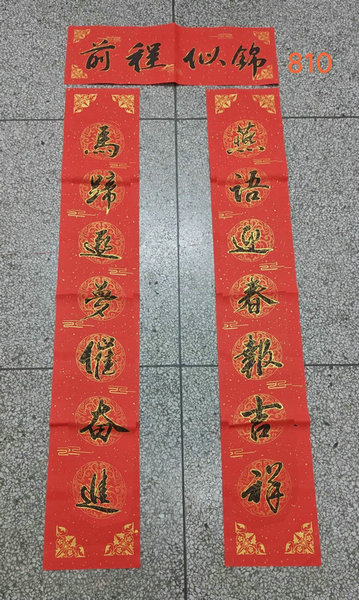 前程似錦
810
燕語迎春報吉祥
馬蹄逐夢催奋進